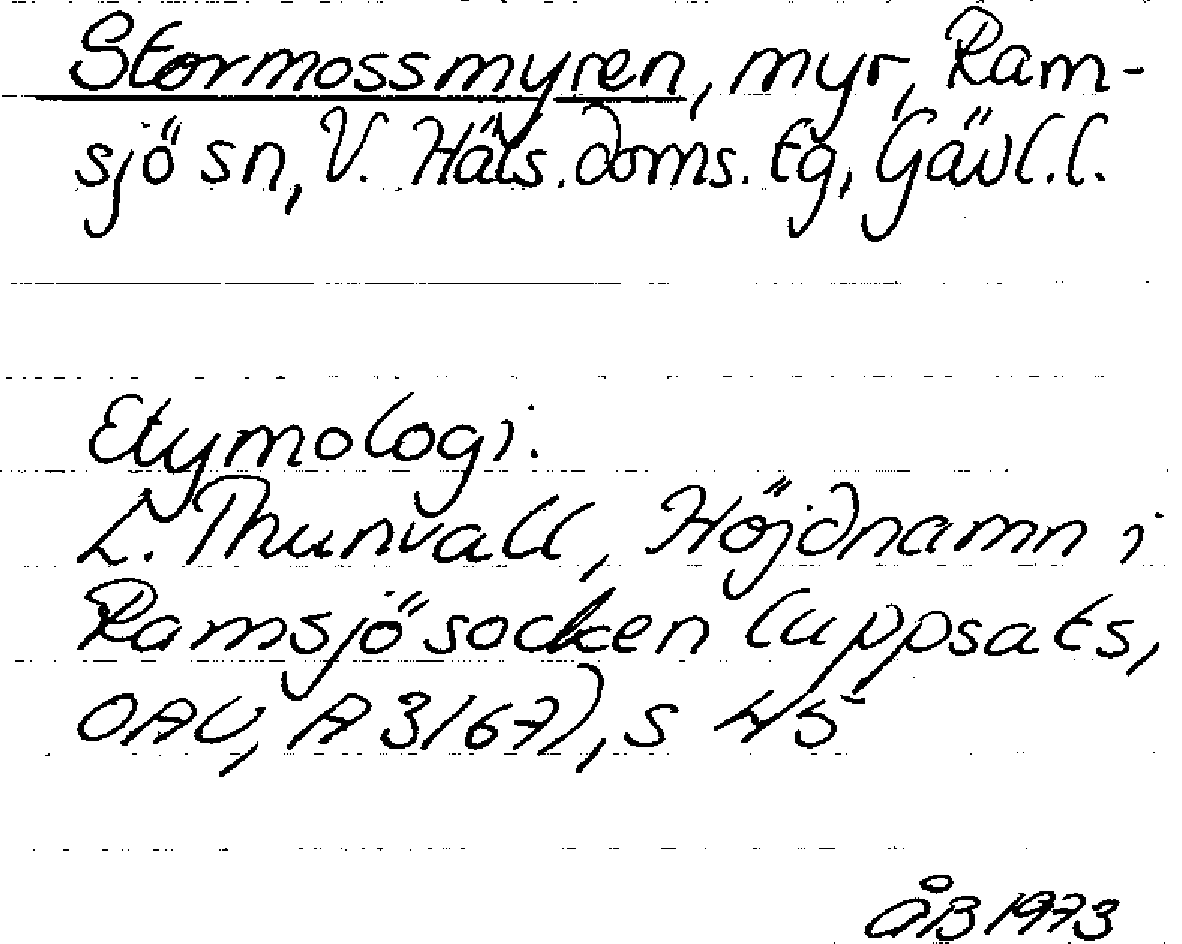 Stormossmyren, myr, Ram-
sjö sn, V. Häls. doms. tg, Gävl. l.
Etymologi.
L. Thunvall, Höjdnamn i
Ramsjö socken (uppsats,
OAU, A 3/67), s 45
ÅB 1973